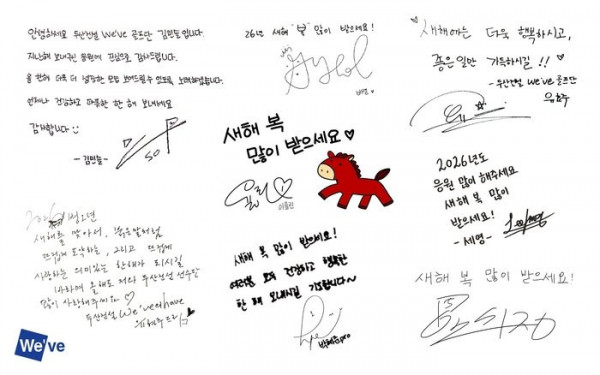 안녕하세요 두산건설 We've 골프단 김민솔입니다.
지난해 보내주신 응원에 진심으로 감사드립니다.
올 한해 더욱 더 성장한 모습 보여드릴 수 있도록 노력하겠습니다.
언제나 건강하고 따뜻한 한 해 보내세요
감사합니다
-김민솔-
SOL
26년 새해 "복" 많이 받으세요!
새해에는 더욱 행복하시고,
좋은일만 가득하시길!! ♡
-두산건설 We've 골프단
유효주
새해 복
많이 받으세요 ♡
이율린
2026년도
응원 많이 해주세요
새해 복 많이
받으세요!
-세영-
2026 병오년
새해를 맞아서, 붉은말처럼
뜨겁게 도약하는, 그리고 뜨겁게
사랑하는 의미있는 한해가 되시길
바라며 올해도 저와 두산건설 선수단
많이 사랑해주세요 ♡
두산건설 We've
유현주 프로
새해 복 많이 받으세요!
여러분 모두 건강하고 행복한
한 해 보내시길 기도합니다~
박혜준pro
새해 복 많이 받으세요!
We've